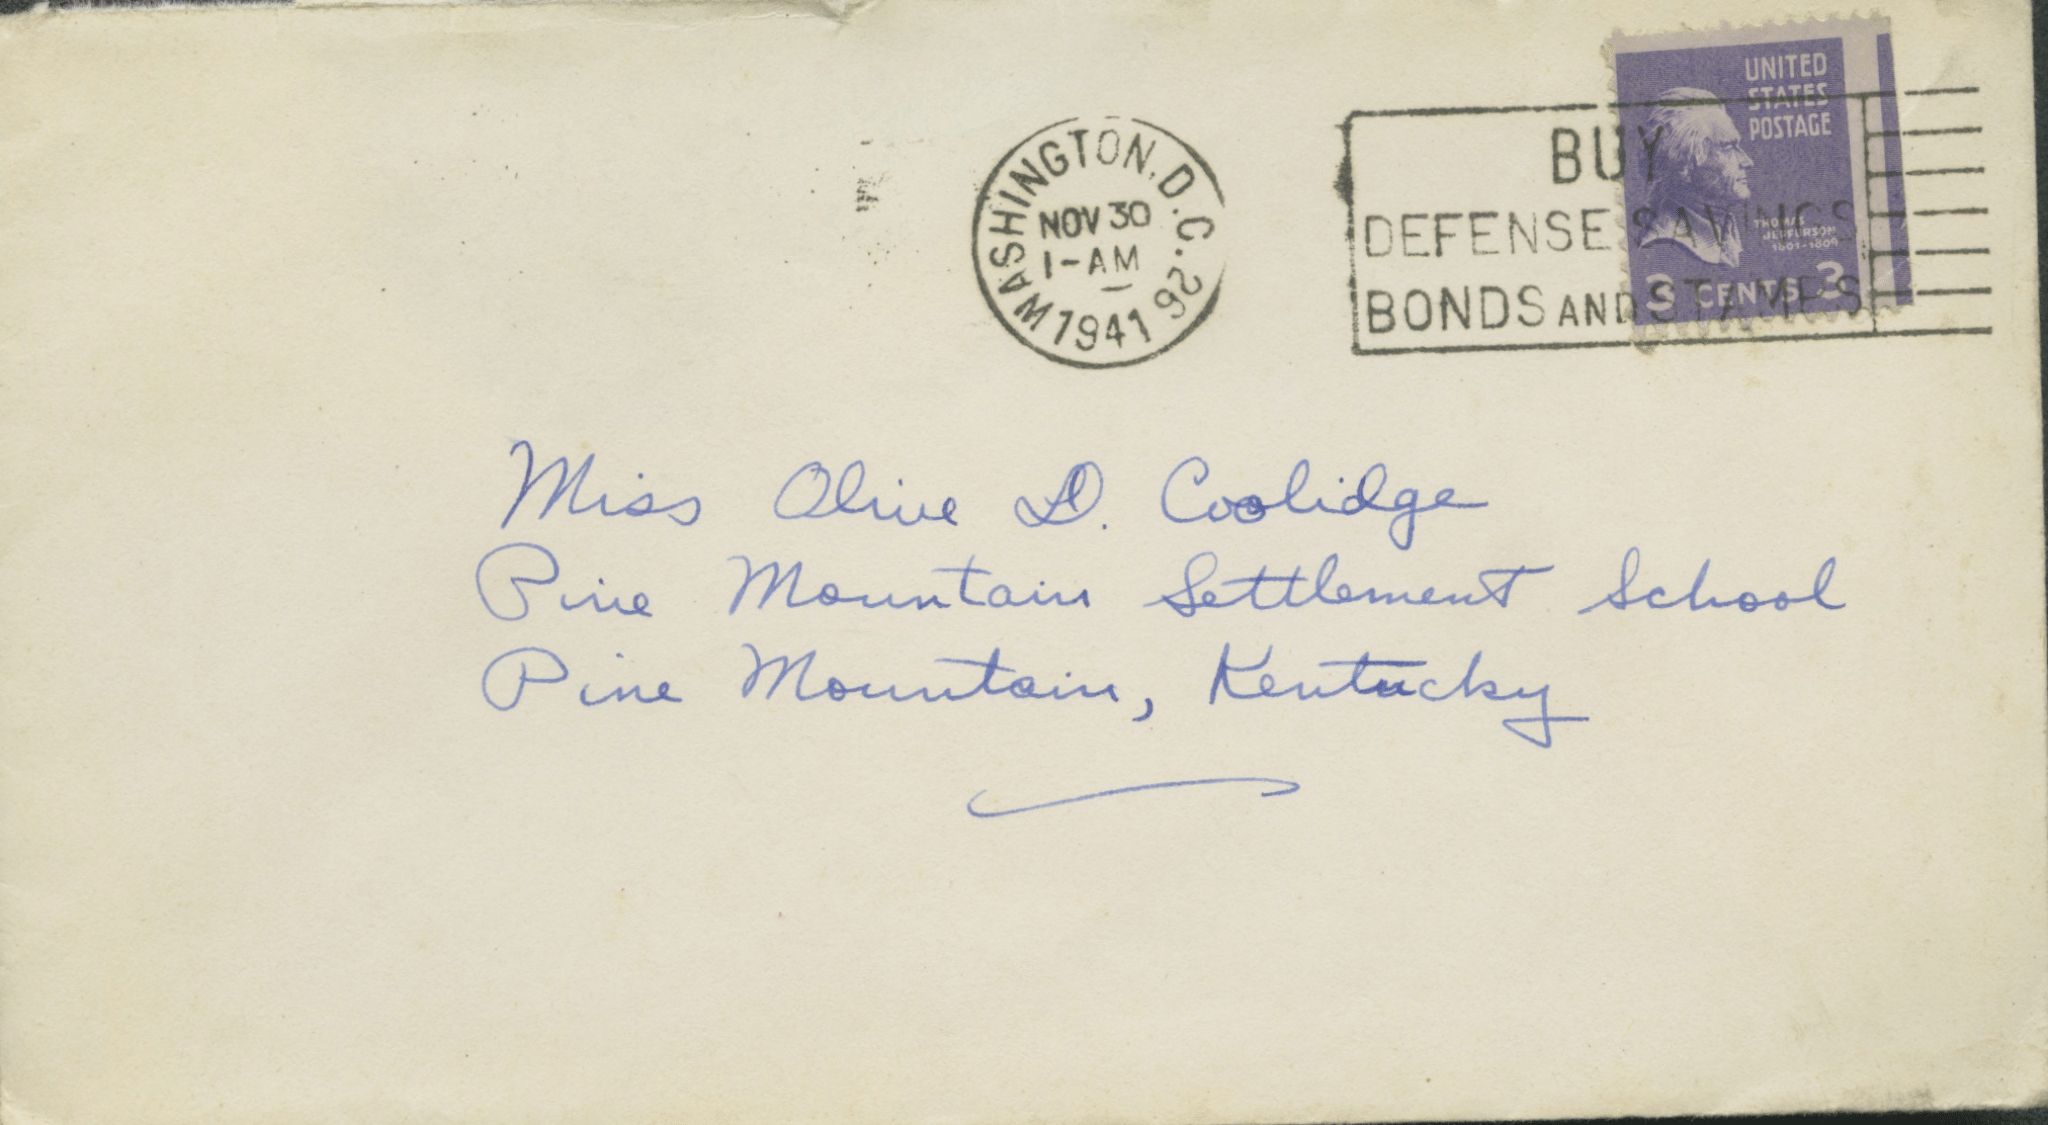 WASHINGTON, D.C. 26
NOV 30
1-AM
1941
BUY
DEFENSE SAVINGS
BONDS AND STAMPS
UNITED
STATES
POSTAGE
THOMAS
JEFFERSON
1801-1809
3 CENTS 3
Miss Olive D. Coolidge
Pine Mountain Settlement School
Pine Mountain, Kentucky